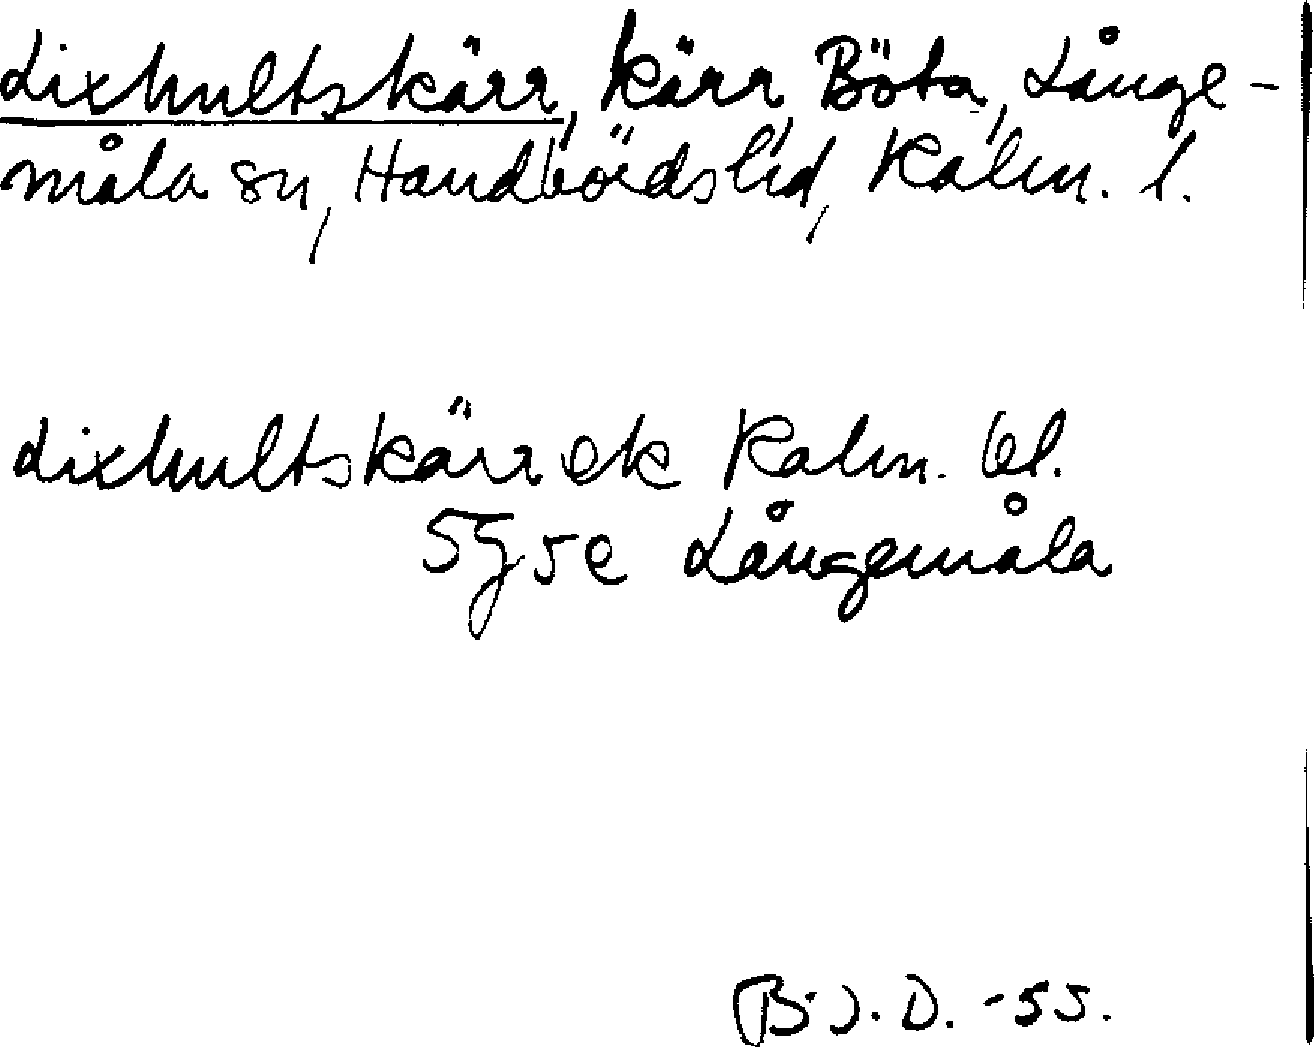 Lixhultskärr, kärr, Böta, Långe-
måla sn, Handbörds hd, Kalm. l.
Lixhultskärr ek Kalm. bl.
5G5e Långemåla
B.J.D. -55.